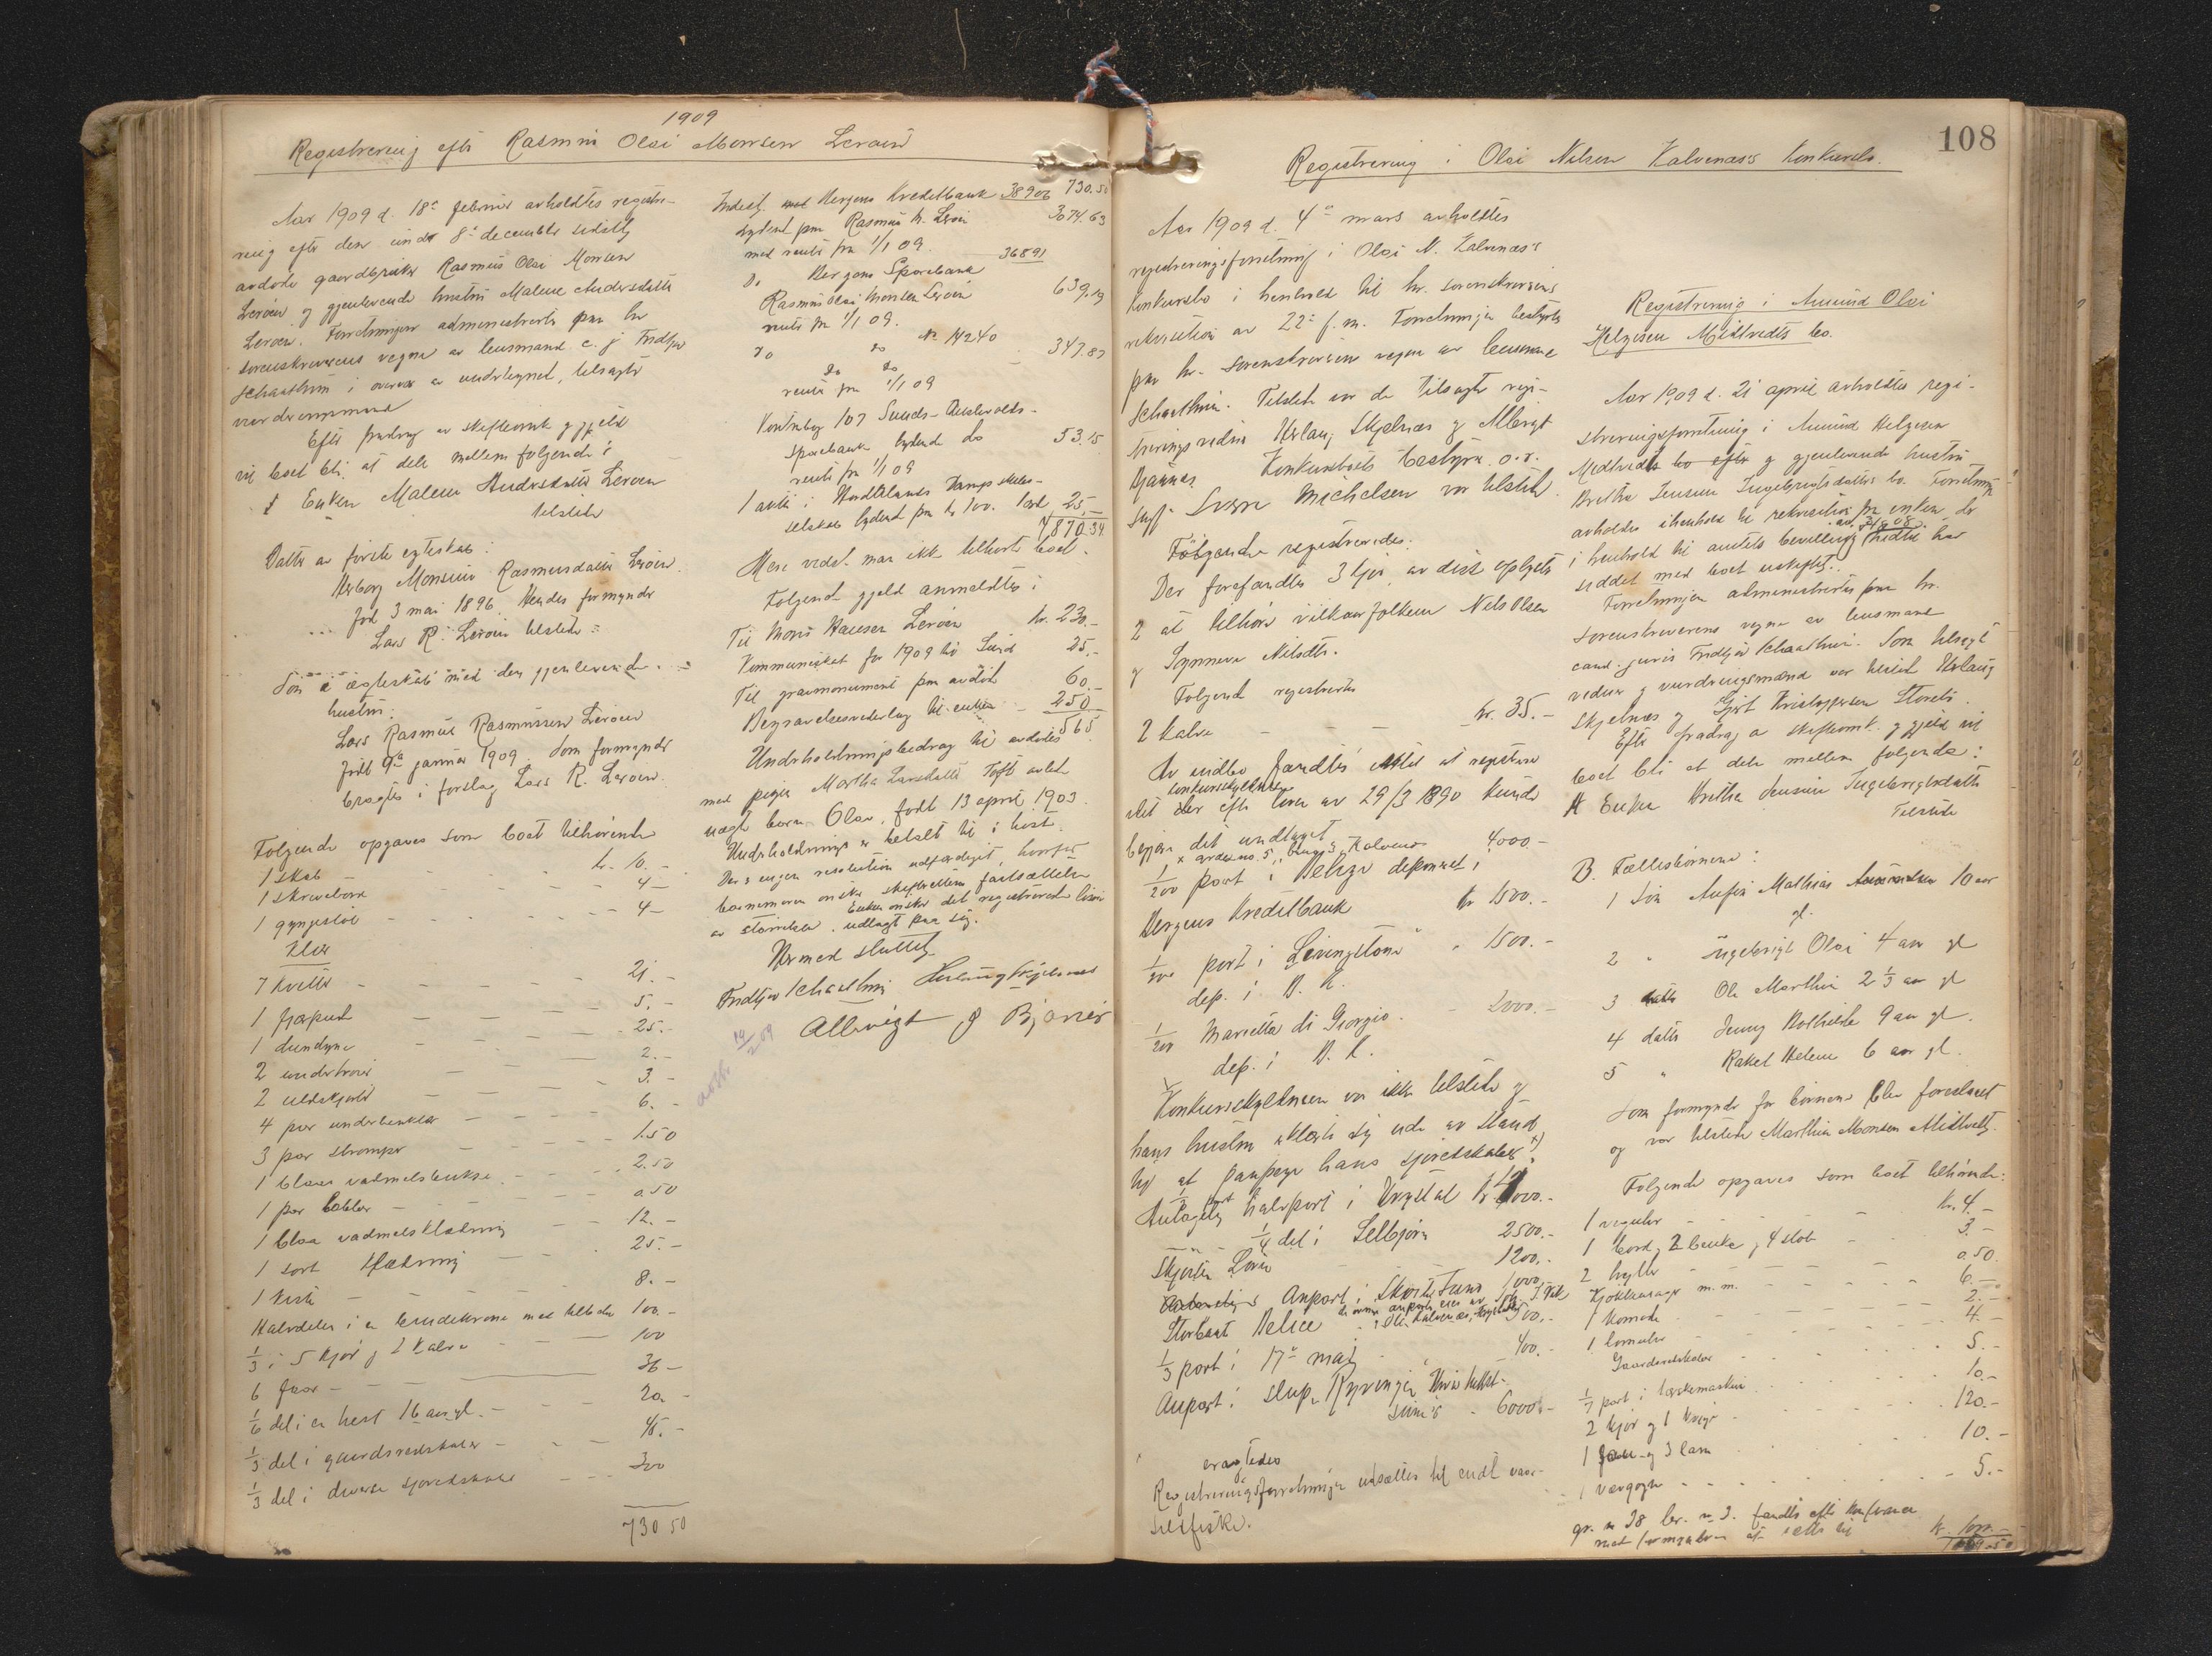 1909
Registrering efter Rasmus Olai Monsen Leröen
Aar 1909 d. 18de februar avholdtes registre-
ring efter den under 8de december sidstl.
avdöde gaardbruker Rasmus Olai Monsen
Leröen og gjenlevende hustru Malene Andersdatter
Leröen. Forretningen administrertes paa hr
sorenskriverens vegne av lensmand c. j. Fridtjov
Schaathun i overvær av undertegnet, tilsagte
vurderingsmænd
Efter fradrag av skifteomk. og gjeld
vil boet bli at dele mellem følgende:
Enken Malene Andersdatter Leröen
tilstede
Datter av første egteskab:
Herborg Monsine Rasmusdatter Leröen.
född 3 mai 1896. Hendes formynder
Lars R. Leröen tilstede
Sön i ægteskab med den gjenlevende
hustru:
Lars Rasmus Rasmussen Leröen
födt 9de januar 1909. Som formynder
bragtes i forslag Lars R. Leröen.
Følgende opgaves som boet tilhörende
1 skab - - - kr. 10.-
1 skrivebord - - - 4-
1 gyngestol - - - 4-
Klær
7 kvitler - - - 21.-
1 - - - 5.-
1 dundyne - - - 25.-
2 undertröier - - - 2.-
2 uldskjorter - - - 3.-
4 par underbenklær - - - 6.-
3 par strømper - - - 1.50
1 blaa vadmelsbukse - - - 2.50
1 par - - - 0.50
1 blaa vadmelsklædning - - - 12.-
1 sort klædning - - - 25.-
1 kiste - - - 8.-
Halvdelen i en brudekrone med tilbehør 100.-
1/3 i 5 kjør og 2 kalve - - - 100
6 faar - - - 36-
1/6 del i en hest 16 aar gl. - - - 20.-
1/3 del i gaardsredskaber - - - 45.-
1/3 del i diverse sjøredskaber - - - 300
730 50
Indest. Bergens Kreditbank 38906 730.50
lydende paa Rasmus M. Leröen 3074.63
med rente fra 1/1 09.
Do Bergens Sparebank 36891
Rasmus Olai Monsen Leröen 639.19
rente fra 1/1 09.
do do No 14240 347.87
do do
rente fra 1/1 09
Kontrabog 107 Sunds-Austevolds-
sparebank lydende do 53.15
rente fra 1/1 09
1 aktie i Hordelands Dampskibs-
selskab lydende paa kr 100. 25.-
Mere vedst. man ikke tilhørte boet.
Følgende gjeld anmeldtes:
Til Mons Hansen Leröen kr. 230.-
Kommuneskat for 1909 til Sund 25.-
Til gravmonument paa avdöde 60.-
Begravelsesvederlag til enken 250
565
Underholdningsbidrag til avdödes
med pigen Martha Larsdatter Toft avlede
uægte barn Olav, födt 13 april 1903.
Underholdningen er betalt til i höst.
Der er ingen resolution utfærdiget, hvorfor
barnemoren önsker skifterettens fastsættelse
av störrelsen. Enken önsker det registrerede lösöre
utlagt paa sig.
Hermed sluttet
Fridtjov Schaathun Herlaug Skjelnes
Albrigt J Bjånes
19/2 09
108
Registrering i Olai Nilsen Kalvenæs's konkursbo.
Aar 1909 d. 4de mars avholdtes
registreringsforretning i Olai N. Kalvenæs's
konkursbo i henhold til hr. sorenskriverens
rekvisition av 22de f. m. Forretningen bestyrtes
paa hr. sorenskriverens vegne av lensmand
Schaathun. Tilstede var de tilsagte regi-
streringsvidner Herlaug Skjelnes og Albrigt
Bjaanes. Konkursboets bestyrer o.r.
sagf. Sverre Michelsen var tilstede.
Følgende registreredes:
Der forefandtes 3 kjør, av disse oplystes
2 at tilhøre vilkaarsfolkene Nils Olsen
og Synneva Nilsdtr.
Følgende registrertes
2 kalve - - - kr. 35.-
Av indbo fandtes intet at registrere
idet der efter loven av 29/3 1890 kunde
konkursskyldneren
begjære det undtaget
x gaarden no. 5, brug 3, Kalvenes 4000.-
1/200 part i "Belize" deponeret i
Bergens Kreditbank kr 1500.-
1/200 part i "Livingstone" " 1500.-
dep. i B. K.
1/200 Marietta di Giorgio. - 2000.-
dep. i B. K.
Konkursskyldneren var ikke tilstede og
hans hustru erklærte sig ude av stand
til at paapege hans sjøredskaber. x)
Antagelig halvpart i Krystal kr 4000.-
1/4 del i Selbjørn 2500.-
Skjøite Lövö 1200.-
Anpart i Skøite Fund 1000,-
Storbaat Delice 500.-
1/3 part i 17de mai - 400.-
Anpart i slup "Ryvingen" - 6000.-
Registreringsforretningen utsættes til endt vaar-
sildfiske.
Registrering i Amund Olai
Helgesen Midtvedts bo.
Aar 1909 d. 21 april avholdtes regi-
streringsforretning i Amund Helgesen
Midtvedts bo og gjenlevende hustru
Brithe Jensine Ingebrigtsdatters bo. Forretningen
avholdes ihenhold til rekvisition fra enken der
i henhold til amtets bevilling hidtil har
siddet med boet uskiftet.
Forretningen administrertes paa hr.
sorenskriverens vegne av lensmand
cand. juris Fridtjov Schaathun. Som tilsagt
vidner og vurdringsmænd var tilstede Herlaug
Skjelnes og Gjert Kristoffersen Storebö.
Efter fradrag av skifteomk. og gjeld vil
boet bli at dele mellem følgende:
A Enken Brithe Jensine Ingebrigtsdatter
Tilstede
B. Fællesbörnene:
1 Sön Mathias 10 aar
gl.
2 " Ingebrigt Olai 4 aar gl
3 Ole Marthin 2 1/3 aar gl
4 datter Jenny Bothilde 9 aar gl.
5 " Rakel Helene 6 aar gl.
Som formynder for börnene blev foreslaaet
og var tilstede Marthin Monsen Midtvedt.
Følgende opgaves som boet tilhörende:
1 væguhr - - - kr. 4.-
1 bord, 2 bænke, 4 stole - - - 3.-
2 hyller - - - 0.50
Kjøkkensager m.m. - - - 6.-
1 komode - - - 2.-
1 lommeuhr - - - 4.-
Gaardsredskaber - - - 5.-
1/7 part i tærskemaskin - - - 10.-
2 kjør og 1 kvige - - - 120.-
1 faar og 3 lam - - - 10.-
1 - - - 5.-
gr. no 38 br. no 3. fandtes efter konferance
med formynderen at sættes til